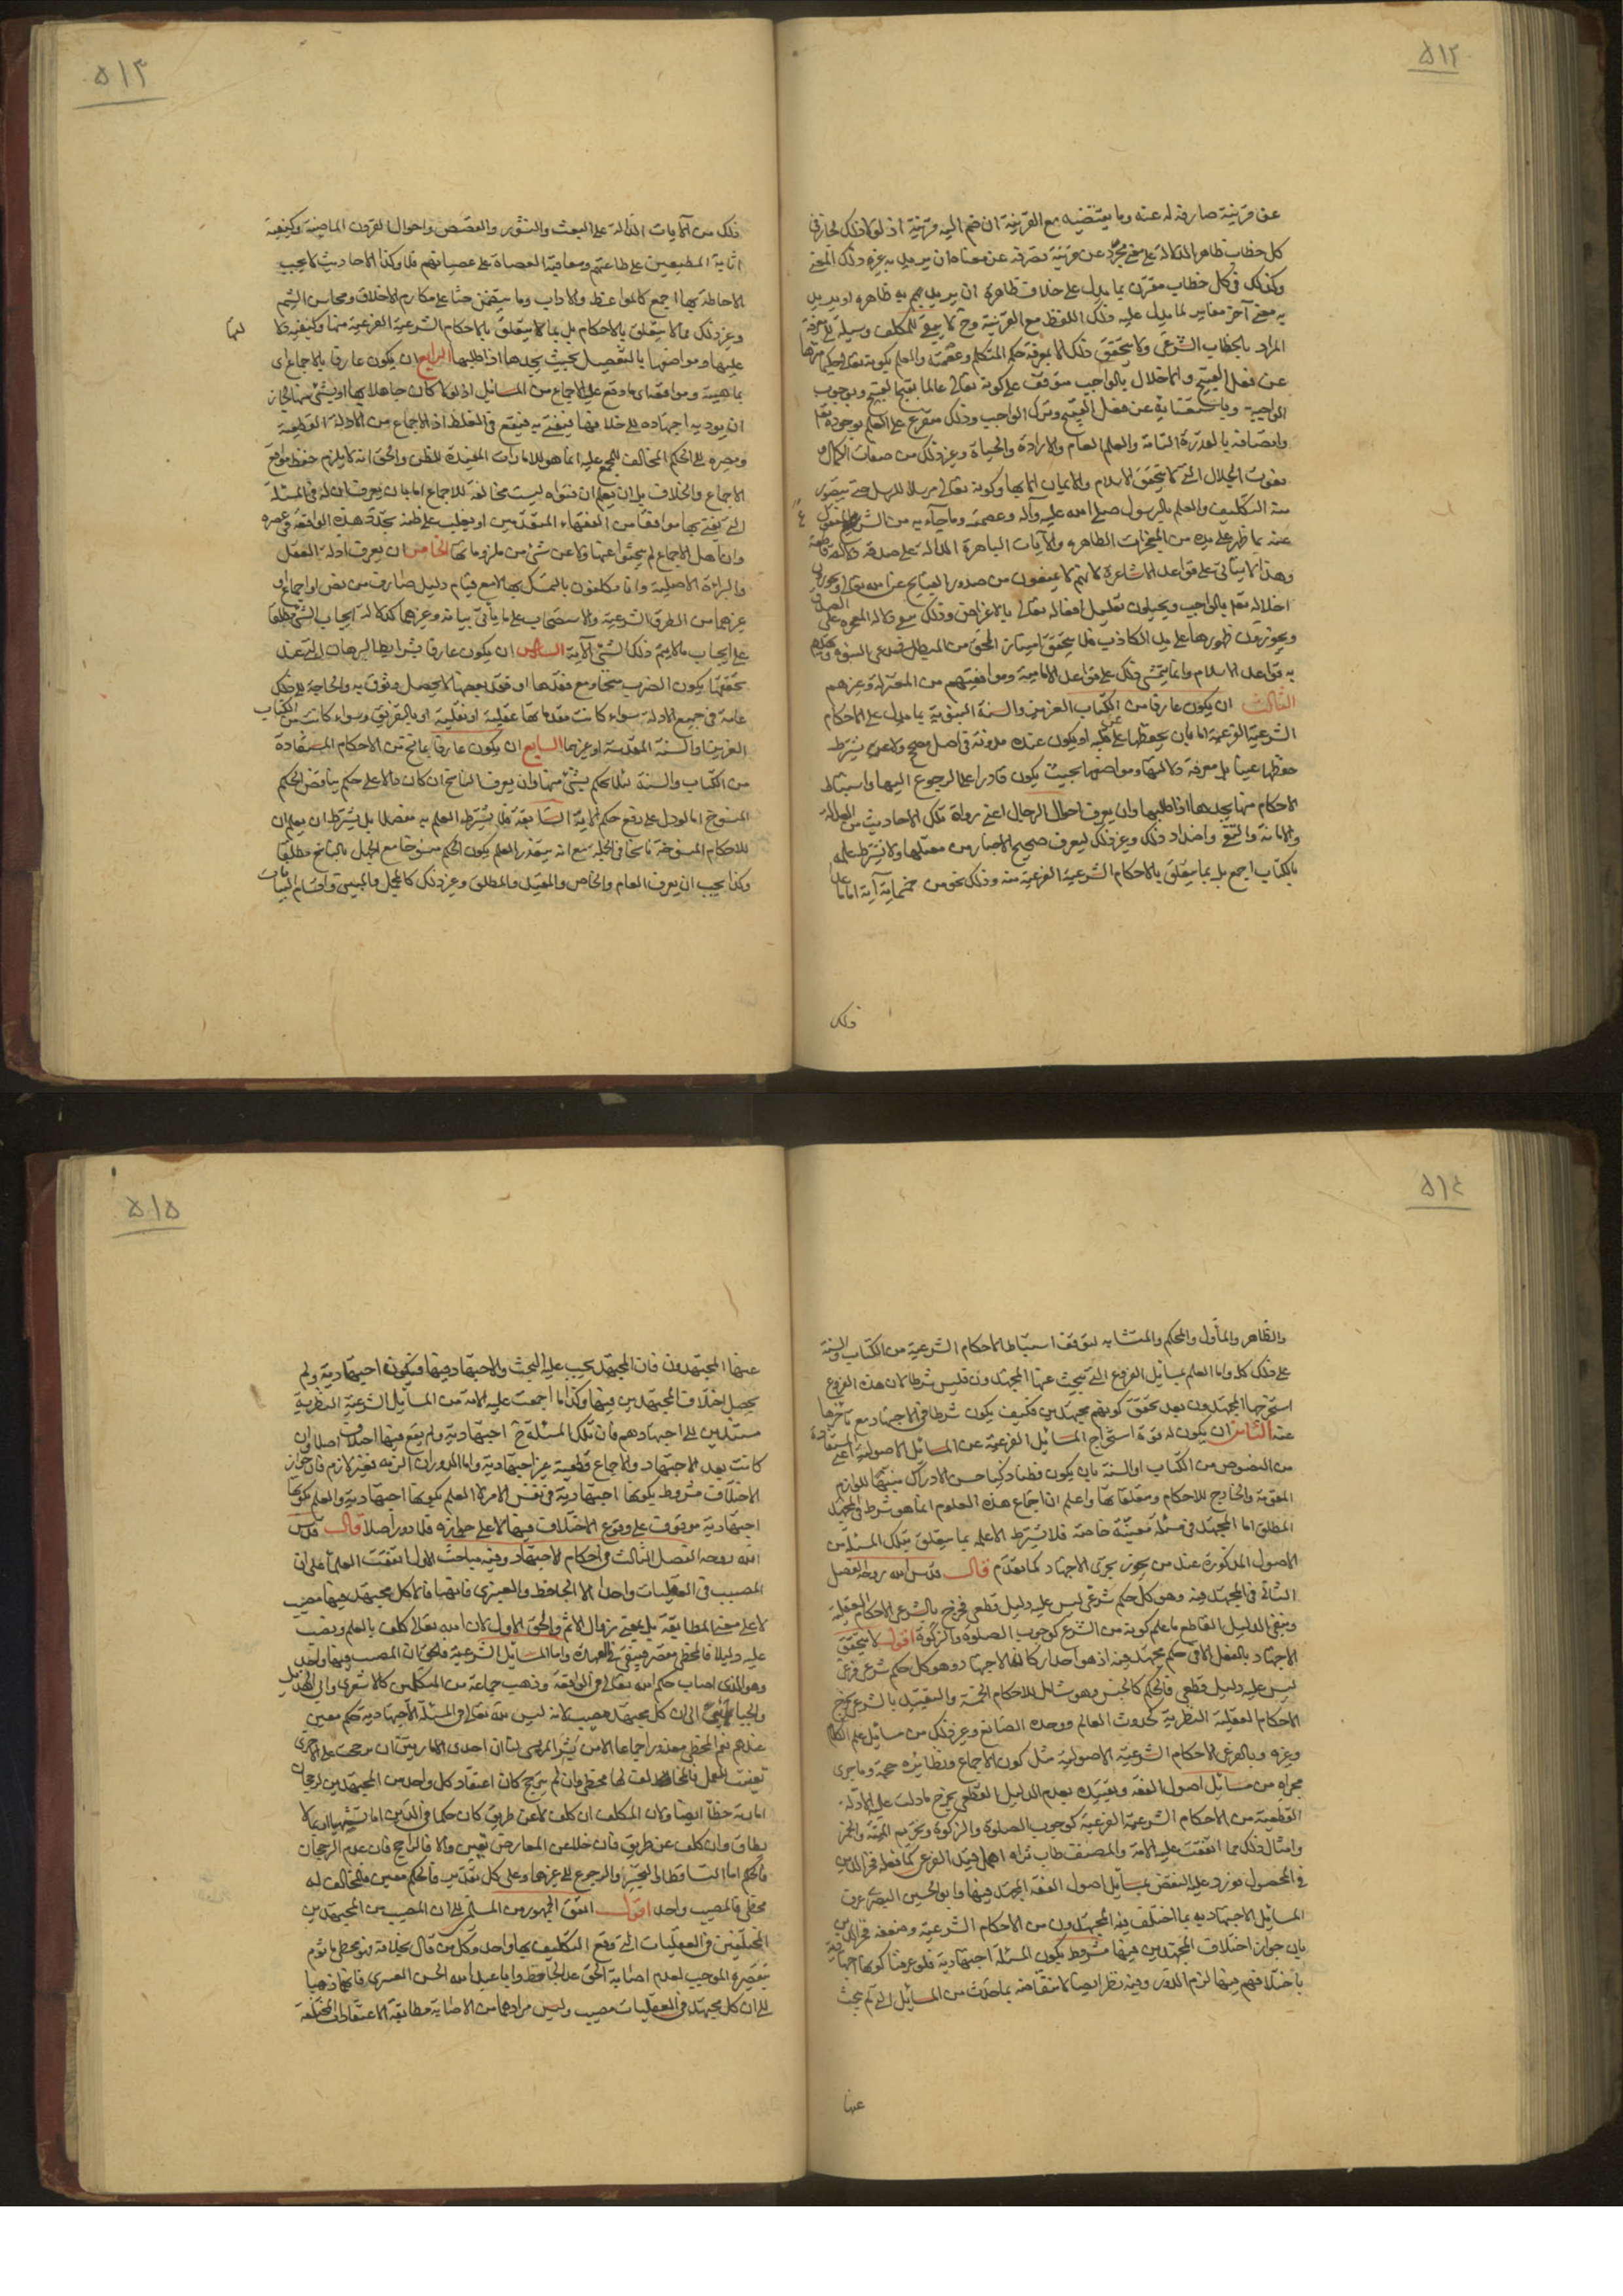 ٥١٢
عن قرينة صارفة له عنه وما يقتضيه مع القرينة ان ضم اليه قرينة اذ لولا ذلك لجاز في
كل خطاب ظاهر الدلالة على معنى مجرد عن قرينة تصرفه عن معناه ان يريد به غيره ذلك المعنى
وكذلك في كل خطاب مقترن بما يدل على خلاف ظاهره ان يريد به ظاهره او يريد
به معنى آخر مغاير لما يدل عليه ذلك اللفظ مع القرينة وح لا يبقى للمكلف وسيلة الى معرفة
المراد بالخطاب الشرعي ولا يتحقق ذلك الا بمعرفة حكم المتكلم وعصمته والعلم بكونه تعالى حكيما منزها
عن فعل القبيح والاخلال بالواجب متوقف على كونه تعالى عالما بقبح القبيح وبوجوب
الواجب وباستغنائه عن فعل القبيح وترك الواجب وذلك متفرع على العلم بوجوده تعالى
واتصافه بالقدرة التامة والعلم العام والارادة والحياة وغير ذلك من صفات الكمال و
نعوت الجلال التي لا يتحقق الاسلام والايمان الا بها وكونه تعالى مرسلا للرسل حتى يتصور
منه التكليف والعلم بالرسول صلى الله عليه وآله وعصمته وما جاء به من الشرع المنقول
عنه بما ظهر على يده من المعجزات الظاهرة والآيات الباهرة الدالة على صدقه دلالة قاطعة
وهذا لا يتأتى على قواعد الاشاعرة لانهم لا يمنعون من صدور القبايح عن الله تعالى ويجوزون
اخلاله تعالى بالواجب ويحيلون تعليل افعاله تعالى بالاغراض وذلك يمنع دلالة المعجزة على الصدق
ويجوزون ظهورها على يد الكاذب فلا يتحقق امتياز المحق من المبطل في دعوى النبوة
به قواعد الاسلام وانما يتمشى ذلك على قواعد الامامية وموافقيهم من المعتزلة وغيرهم
الثالث ان يكون عارفا من الكتاب العزيز والسنة النبوية بما يدل على الاحكام
الشرعية الفرعية اما بان يحفظها على قلبه او يكون عنده مدونة في اصل صحيح ولا يشترط
حفظها عينا بل معرفة دلالتها ومواضعها بحيث يكون قادرا على الرجوع اليها واستنباط
الاحكام منها بجدها اذا طلبها وان يعرف احوال الرجال اعني رواة تلك الاحاديث من العدالة
والامانة والثقة واضداد ذلك وغير ذلك ليعرف صحيح الاخبار من معتلها ولا يشترط علمه
بالكتاب اجمع بل بما يتعلق بالاحكام الشرعية الفرعية منه وذلك نحو من خمسمائة آية اما ما عدا
ذلك
٥١٣
ذلك من الآيات الدالة على البعث والنشور والقصص واحوال القرون الماضية وكيفية
اثابة المطيعين على طاعتهم ومعاقبة العصاة على عصيانهم فلا وكذا الاحاديث لا يجب
الاحاطة بها اجمع كالمواعظ والاداب وما يتضمن حثا على مكارم الاخلاق ومحاسن الشيم
وغير ذلك مما لا يتعلق بالاحكام بل بما يتعلق بالاحكام الشرعية الفرعية منها وكيفية
عليها ومواضعها بالتفصيل بحيث يجدها اذا طلبها الرابع ان يكون عارفا بالاجماع اي
بماهيته ومواقعه اي ما وقع عليه الاجماع من المسائل اذ لو كان جاهلا بها او بشئ منها لجاز
ان يوديه اجتهاده الى خلافها فيفتي به فيقع في الغلط اذ الاجماع من الادلة القطعية
ومصيره الى الحكم المخالف للمجمع عليه انما هو للامارات المفيدة للظن والحق انه لا يلزم حفظ مواقع
الاجماع والخلاف بل ان يعلم ان فتواه ليست مخالفة للاجماع اما بان يعرف ان له في المسئلة
التي يفتي بها موافقا من الفقهاء المتقدمين او يغلب على ظنه تجدد هذه الواقعة في عصره
وان اهل الاجماع لم يبحثوا عنها ولا عن شئ من ملزوماتها الخامس ان يعرف ادلة العقل
والبراءة الاصلية وانا مكلفون بالتمسك بها الا مع قيام دليل صارف من نص او اجماع او
غيرهما من الطرق الشرعية والاستصحاب على ما يأتي بيانه وغيرهما كدلالة ايجاب الشئ مطلقا
على ايجاب ما لا يتم ذلك الشئ الا به السادس ان يكون عارفا بشرايط البرهان التي عند
تحققها يكون الضرب منتجا ومع فقدها او فقد بعضها لا يحصل وثوق به والحاجة الى ذلك
عامة في جميع الادلة سواء كانت مقدماتها عقلية او نقلية او بالتفريق وسواء كانت من الكتاب
العزيز او السنة المقدسة او غيرهما السابع ان يكون عارفا بما نسخ من الاحكام المستفادة
من الكتاب والسنة لئلا يحكم بشئ منها وان يعرف الناسخ ان كان دالا على حكم يناقض الحكم
المنسوخ اما لو دل على رفع حكم الآية السابقة فلا يشترط العلم به مفصلا بل يشترط ان يعلم ان
للاحكام المنسوخة ناسخا في الجملة مع انه يتعذر العلم بكون الحكم منسوخا مع الجهل بالناسخ مطلقا
وكذا يجب ان يعرف العام والخاص والمقيد والمطلق وغير ذلك كالمجمل والمبين واقسام البيانات
٥١٤
والظاهر والمأول والمحكم والمتشابه لتوقف استنباط الاحكام الشرعية من الكتاب والسنة
على ذلك كله واما العلم بمسائل الفروع التي يبحث عنها المجتهدون فليس شرطا لان هذه الفروع
استخرجها المجتهدون بعد تحقق كونهم مجتهدين فكيف يكون شرطا في الاجتهاد مع تأخرها
عنه الثامن ان يكون له قوة استخراج المسائل الفرعية عن المسائل الاصولية اعني المستفادة
من النصوص من الكتاب او السنة بان يكون فطنا ذكيا حسن الادراك منتبها للوازم
المقومة والخارج للاحكام ومتعلقاتها واعلم ان اجتماع هذه العلوم انما هو شرط في المجتهد
المطلق اما المجتهد في مسئلة معينة خاصة فلا يشترط الا علمه بما يتعلق بتلك المسئلة من
الاصول المذكورة عند من يجوز تجزى الاجتهاد كما تقدم قال قدس الله روحه الفصل
الثاني في المجتهد فيه وهو كل حكم شرعي ليس عليه دليل قطعي فخرج بالشرعي الاحكام العقلية
وبنفي الدليل القاطع ما علم كونه من الشرع كوجوب الصلوة والزكوة اقول لا يتحقق
الاجتهاد بالفعل الا في حكم مجتهد فيه اذ هو احد اركان الاجتهاد وهو كل حكم شرعي فرعي
ليس عليه دليل قطعي فالحكم كالجنس وهو شامل للاحكام الخمسة والتقييد بالشرعي يخرج
الاحكام العقلية النظرية كحدوث العالم ووحدة الصانع وغير ذلك من مسائل علم الكلام
وغيره وبالفرعي الاحكام الشرعية الاصولية مثل كون الاجماع ونظائره حجة وما جرى
مجراه من مسائل اصول الفقه وتقييده بعدم الدليل القطعي يخرج ما دلت عليه الادلة
القطعية من الاحكام الشرعية الفرعية كوجوب الصلوة والزكوة وتحريم الميتة والخمر
وامثال ذلك مما اتفقت عليه الامة والمصنف طاب ثراه اهمل قيد الفرعي كما فعله فخر الدين
في المحصول فورد عليه النقض بمسائل اصول الفقه المجتهد فيها وابو الحسين البصري عرف
المسائل الاجتهادية بما اختلف فيه المجتهدون من الاحكام الشرعية وضعفه فخر الدين
بان جواز اختلاف المجتهدين فيها مشروط بكون المسئلة اجتهادية فلو عرفنا كونها اجتهادية
باختلافهم فيها لزم الدور وفيه نظر ايضا لانتقاضه بما حدث من المسائل التي لم يبحث
عنها
٥١٥
عنها المجتهدون فان المجتهد يجب عليه البحث والاجتهاد فيها فيكون اجتهادية ولم
يحصل اختلاف المجتهدين فيها وكذا ما اجمعت عليه الامة من المسائل الشرعية النظرية
مستندين الى اجتهادهم فان تلك المسئلة ح اجتهادية ولم يقع فيها اختلاف اصلا وان
كانت بعد الاجتهاد والاجماع قطعية غير اجتهادية واما الدور ان الزمه فغير لازم فان جواز
الاختلاف مشروط بكونها اجتهادية في نفس الامر لا العلم بكونها اجتهادية والعلم بكونها
اجتهادية موقوف على وقوع الاختلاف فيها لا على جوازه فلا دور اصلا قال قدس
الله روحه الفصل الثالث في احكام الاجتهاد وفيه مباحث الاول اتفقت العلماء على ان
المصيب في العقليات واحد الا الجاحظ والعنبري فانهما قالا كل مجتهد فيها مصيب
لا على معنى المطابقة بل بمعنى زوال الاثم والحق الاول لان الله تعالى كلف بالعلم ونصب
عليه دليلا فالمخطئ مقصر فيبقى في العهدة واما المسائل الشرعية فالحق ان المصيب فيها واحد
وهو الذي اصاب حكم الله تعالى في الواقعة وذهب جماعة من المتكلمين كالاشعري وابي الهذيل
والجبائيين الى ان كل مجتهد مصيب لانه ليس لله تعالى في المسئلة الاجتهادية حكم معين
عندهم نعم المخطئ معذور اجماعا الا من بشر المريسي لنا ان احدى الامارتين ان رجحت على الاخرى
تعينت للعمل فالمخالف لها مخطئ وان لم يترجح كان اعتقاد كل واحد من المجتهدين لرجحان
امارته خطأ ايضا ولان المكلف ان كلف لا عن طريق كان حكما في الدين اما تشهيا او بما لا
يطاق وان كلف عن طريق فان خلا عن المعارض تعين والا فالراجح فان عدم الرجحان
فالحكم اما التساقط او التخيير او الرجوع الى غيرهما وعلى كل تقدير فالحكم معين فالمخالف له
مخطئ فالمصيب واحد اقول اتفق الجمهور من المسلمين على ان المصيب من المجتهدين
المختلفين في العقليات التي وقع التكليف بها واحد وكل من قال بخلافه فهو مخطئ مأثوم
بتقصيره الموجب لعدم اصابة الحق عدا الجاحظ وابا عبد الله الحسن العنبري فانهما ذهبا
الى ان كل مجتهد في العقليات مصيب وليس مرادهما من الاصابة مطابقة الاعتقادات المختلفة